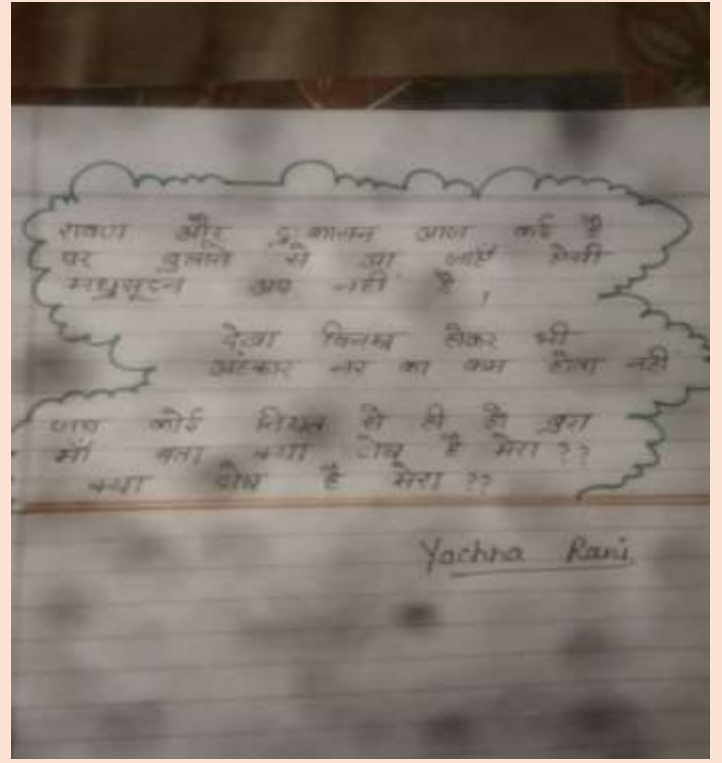 रावण और दुःशासन आज कई है
पर बुलाने से आ जाएँ ऐसी
मधुसूदन अब नहीं है ,
देखा विनम्र होकर भी
अहंकार नर का कम होता नही
जब कोई नियत से ही हो बुरा
माँ बता क्या दोष है मेरा ??
क्या दोष है मेरा ??
Yachna Rani